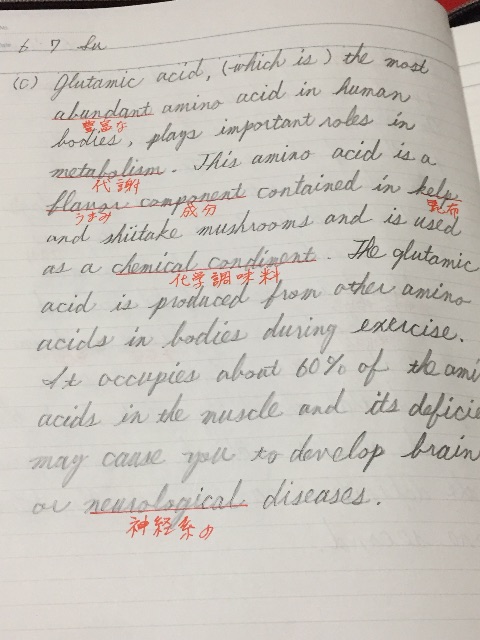 6 7 Su
(C) Glutamic acid, (which is) the most
abundant amino acid in human
豊富な
bodies, plays important roles in
metabolism. This amino acid is a
代謝
flavor component contained in kelp
うまみ 成分 昆布
and shiitake mushrooms and is used
as a chemical condiment. The glutamic
化学調味料
acid is produced from other amino
acids in bodies during exercise.
It occupies about 60% of the ami
acids in the muscle and its deficie
may cause you to develop brain
or neurological diseases.
神経系の